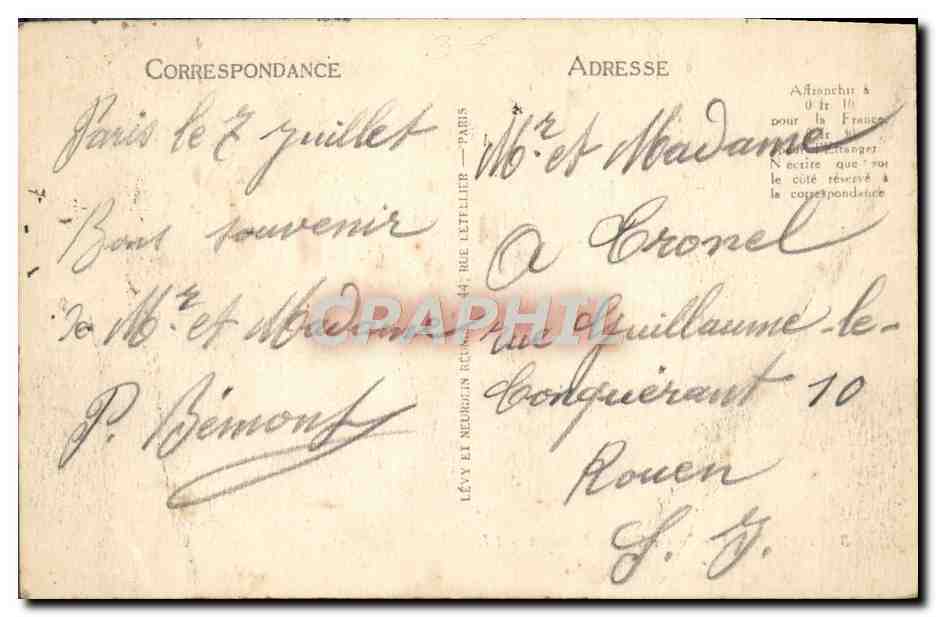 CORRESPONDANCE
Paris le 7 juillet
Bons souvenir
de Mr. et Madame
P. Bémont
LÉVY ET NEURDEIN RÉUNIS, 44, RUE LETELLIER — PARIS
ADRESSE
Affranchir à
0 fr 10
pour la France
pour l'Étranger
N'écrire que sur
le côté réservé à
la correspondance
Mr. et Madame
A Cronel
rue Guillaume-le-
Conquérant 10
Rouen
S. I.
CPAPHIL